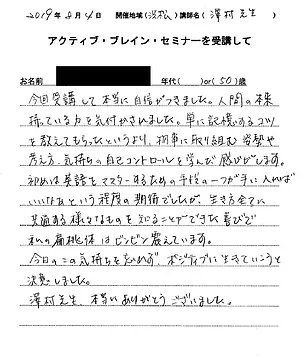 2019年8月4日 開催地域(浜松)講師名(澤村先生)
アクティブ・ブレイン・セミナーを受講して
お名前 年代( )or(50)歳
今回受講して本当に自信がつきました。人間の本来
持っている力を気付かされました。単に記憶するコツ
を教えてもらったというより、物事に取り組む姿勢や
考え方、気持ちの自己コントロールを学んだ感じがします。
初めは英語をマスターするための手段の一つが手に入れば
いいなぁという程度の期待でしたが、生き方全てに
共通する様なものを知ることができた喜びで
私の扁桃体はビンビン震えています。
今日のこの気持ちを忘れず、ポジティブに生きていこうと
決意しました。
澤村先生、本当にありがとうございました。